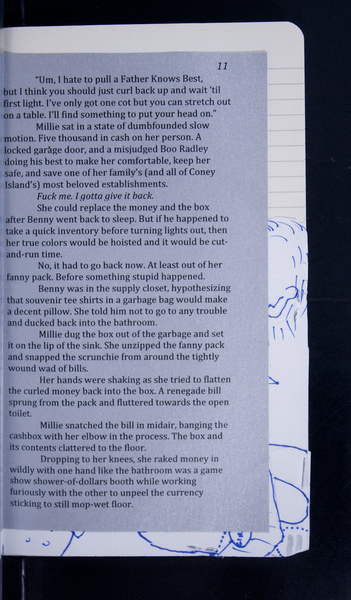 11
"Um, I hate to pull a Father Knows Best,
but I think you should just curl back up and wait 'til
first light. I've only got one cot but you can stretch out
on a table. I'll find something to put your head on."
Millie sat in a state of dumbfounded slow
motion. Five thousand in cash on her person. A
locked garage door, and a misjudged Boo Radley
doing his best to make her comfortable, keep her
safe, and save one of her family's (and all of Coney
Island's) most beloved establishments.
Fuck me. I gotta give it back.
She could replace the money and the box
after Benny went back to sleep. But if he happened to
take a quick inventory before turning lights out, then
her true colors would be hoisted and it would be cut-
and-run time.
No, it had to go back now. At least out of her
fanny pack. Before something stupid happened.
Benny was in the supply closet, hypothesizing
that souvenir tee shirts in a garbage bag would make
a decent pillow. She told him not to go to any trouble
and ducked back into the bathroom.
Millie dug the box out of the garbage and set
it on the lip of the sink. She unzipped the fanny pack
and snapped the scrunchie from around the tightly
wound wad of bills.
Her hands were shaking as she tried to flatten
the curled money back into the box. A renegade bill
sprung from the pack and fluttered towards the open
toilet.
Millie snatched the bill in midair, banging the
cashbox with her elbow in the process. The box and
its contents clattered to the floor.
Dropping to her knees, she raked money in
wildly with one hand like the bathroom was a game
show shower-of-dollars booth while working
furiously with the other to unpeel the currency
sticking to still mop-wet floor.